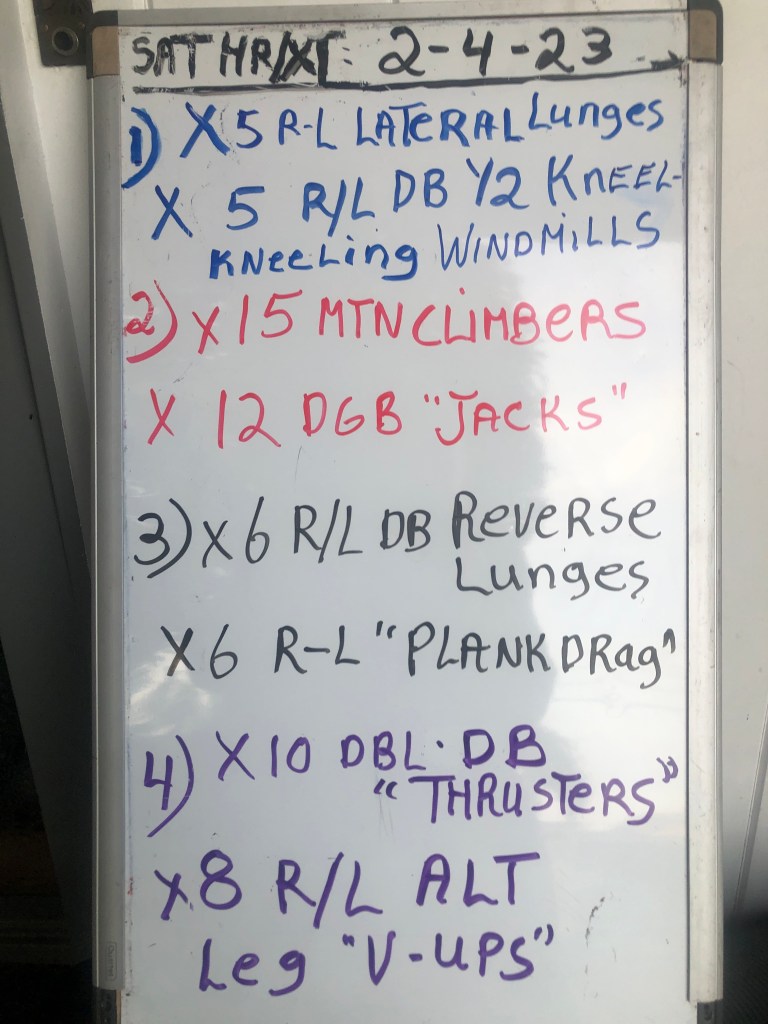 SAT HR/XT: 2-4-23
1) X5 R-L LATERAL Lunges
X 5 R/L DB 1/2 KNEEL-
KNeeLing WINDMiLLS
2) X 15 MTN CLiMBERS
X 12 DGB "JACKS"
3) X 6 R/L DB ReveRSe
Lunges
X6 R-L "PLANK DRag"
4) X 10 DBL. DB
"THRUSTeRS"
X8 R/L ALT
Leg "V-UPS"